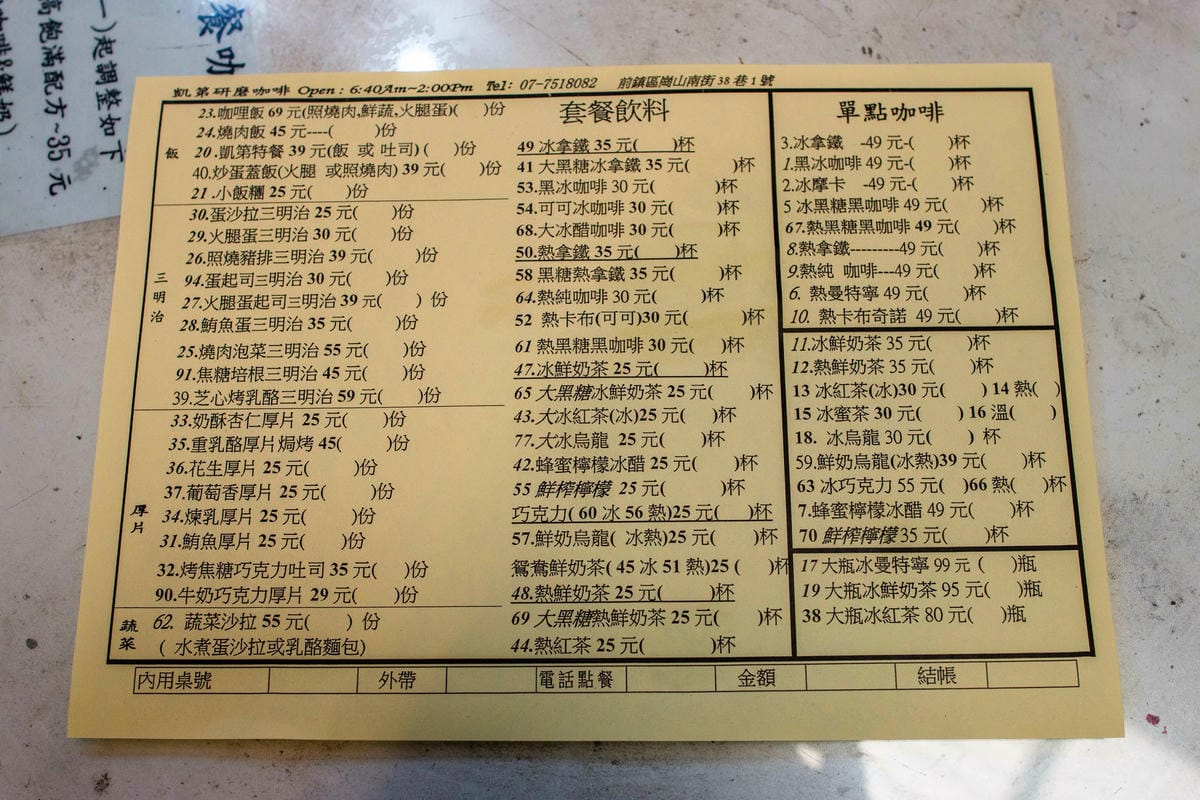 餐咖
一)起調整如下
高飽滿配方~35元
凱第研磨咖啡 Open: 6:40Am~2:00Pm Tel: 07-7518082 前鎮區崗山南街38巷1號
飯
23.咖哩飯 69 元(照燒肉,鮮蔬,火腿蛋)( )份
24.燒肉飯 45 元----( )份
20.凱第特餐 39 元(飯 或 吐司) ( )份
40.炒蛋蓋飯(火腿 或照燒肉) 39 元( )份
21.小飯糰 25 元( )份
三明治
30.蛋沙拉三明治 25 元( )份
29.火腿蛋三明治 30 元( )份
26.照燒豬排三明治 39 元( )份
94.蛋起司三明治 30 元( )份
27.火腿蛋起司三明治 39 元( ) 份
28.鮪魚蛋三明治 35 元( )份
25.燒肉泡菜三明治 55 元( )份
91.焦糖培根三明治 45 元( )份
39.芝心烤乳酪三明治 59 元( )份
厚片
33.奶酥杏仁厚片 25 元( )份
35.重乳酪厚片焗烤 45( )份
36.花生厚片 25 元( )份
37.葡萄香厚片 25 元( )份
34.煉乳厚片 25 元( )份
31.鮪魚厚片 25 元( )份
32.烤焦糖巧克力吐司 35 元( )份
90.牛奶巧克力厚片 29 元( )份
蔬菜
62. 蔬菜沙拉 55 元( ) 份
( 水煮蛋沙拉或乳酪麵包)
套餐飲料
49 冰拿鐵 35 元( )杯
41 大黑糖冰拿鐵 35 元( )杯
53.黑冰咖啡 30 元( )杯
54.可可冰咖啡 30 元( )杯
68.大冰醋咖啡 30 元( )杯
50.熱拿鐵 35 元( )杯
58 黑糖熱拿鐵 35 元( )杯
64.熱純咖啡 30 元( )杯
52 熱卡布(可可)30 元( )杯
61 熱黑糖黑咖啡 30 元( )杯
47.冰鮮奶茶 25 元( )杯
65 大黑糖冰鮮奶茶 25 元( )杯
43.大冰紅茶(冰)25 元( )杯
77.大冰烏龍 25 元( )杯
42.蜂蜜檸檬冰醋 25 元( )杯
55 鮮榨檸檬 25 元( )杯
巧克力( 60 冰 56 熱)25 元( )杯
57.鮮奶烏龍( 冰熱)25 元( )杯
鴛鴦鮮奶茶( 45 冰 51 熱)25 ( )杯
48.熱鮮奶茶 25 元( )杯
69 大黑糖熱鮮奶茶 25 元( )杯
44.熱紅茶 25 元( )杯
單點咖啡
3.冰拿鐵 -49 元-( )杯
1.黑冰咖啡 49 元-( )杯
2.冰摩卡 -49 元-( )杯
5 冰黑糖黑咖啡 49 元( )杯
67.熱黑糖黑咖啡 49 元( )杯
8.熱拿鐵---------49 元( )杯
9.熱純 咖啡---49 元( )杯
6. 熱曼特寧 49 元( )杯
10. 熱卡布奇諾 49 元( )杯
11.冰鮮奶茶 35 元( )杯
12.熱鮮奶茶 35 元( )杯
13 冰紅茶(冰)30 元( ) 14 熱( )
15 冰蜜茶 30 元( ) 16 溫( )
18. 冰烏龍 30 元( ) 杯
59.鮮奶烏龍(冰熱)39 元( )杯
63 冰巧克力 55 元( )66 熱( )杯
7.蜂蜜檸檬冰醋 49 元( )杯
70 鮮榨檸檬 35 元( )杯
17 大瓶冰曼特寧 99 元 ( )瓶
19 大瓶冰鮮奶茶 95 元( )瓶
38 大瓶冰紅茶 80 元( )瓶
內用桌號 外帶 電話點餐 金額 結帳